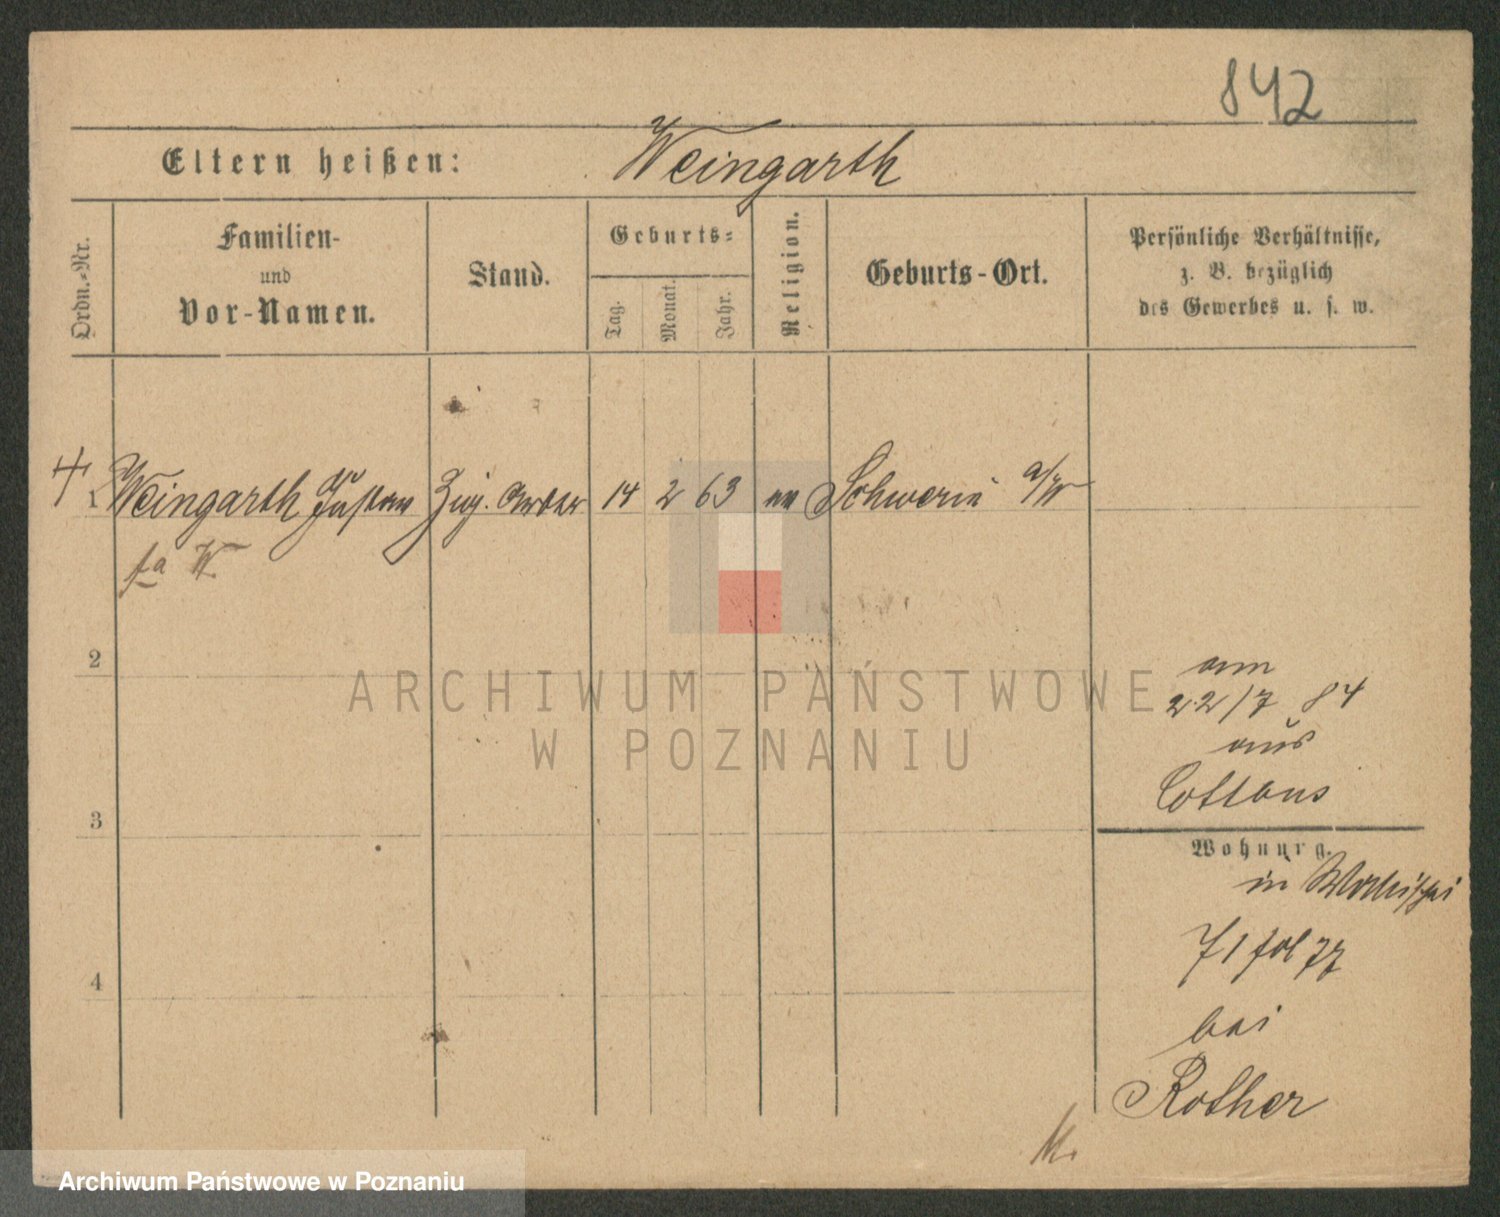 842
Eltern heißen: Weingarth
Ordn.-Nr.
Familien-
und
Vor-Namen.
Stand.
Geburts-
Tag.
Monat.
Jahr.
Religion.
Geburts-Ort.
Persönliche Verhältnisse,
z. B. bezüglich
des Gewerbes u. s. w.
1 Weingarth Gustav Zig. 14 2 63 ev Schwerin a/W
fa W
2
3
4
am
22/7 84
aus
Cottbus
Wohnung.
in
71 fol 77
bei
Rother
ARCHIWUM PAŃSTWOWE
W POZNANIU
Archiwum Państwowe w Poznaniu